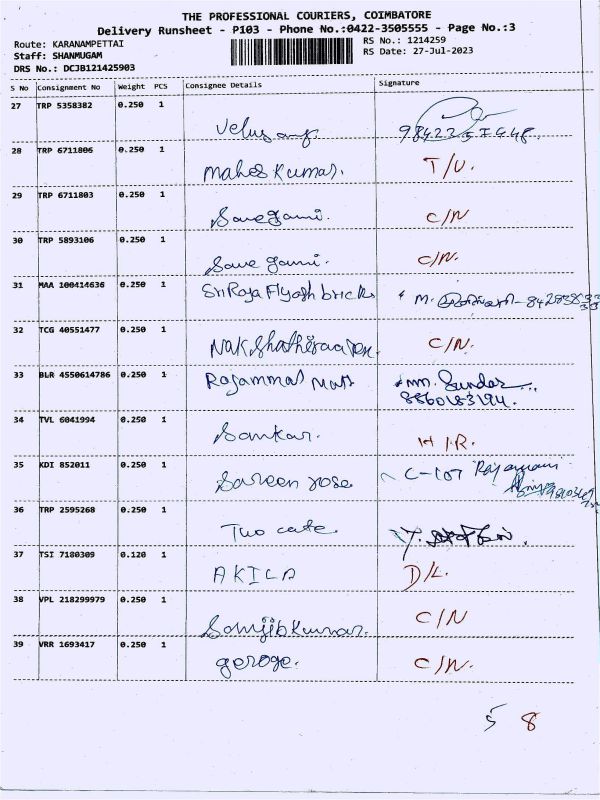 THE PROFESSIONAL COURIERS, COIMBATORE
Delivery Runsheet - P103 - Phone No.:0422-3505555 - Page No.:3
Route: KARANAMPETTAI
Staff: SHANMUGAM
DRS No.: DCJB121425903
RS No.: 1214259
RS Date: 27-Jul-2023
S No Consignment No Weight PCS Consignee Details Signature
27 TRP 5358382 0.250 1
28 TRP 6711806 0.250 1 Mahes Kumar. T/U.
29 TRP 6711803 0.250 1 C/N
30 TRP 5893106 0.250 1 C/N.
31 MAA 100414636 0.250 1 Sri Raja Flyash bricks M.
32 TCG 40551477 0.250 1 C/N.
33 BLR 4550614786 0.250 1 Rajammal Sundar
8860183194.
34 TVL 6041994 0.250 1 Sankar. H/R.
35 KDI 852011 0.250 1 Sareen rose C-107
36 TRP 2595268 0.250 1 Two cate
37 TSI 7180309 0.120 1 AKILA D/L.
38 VPL 218299979 0.250 1 C/N
39 VRR 1693417 0.250 1 geroge. C/N.
5 8